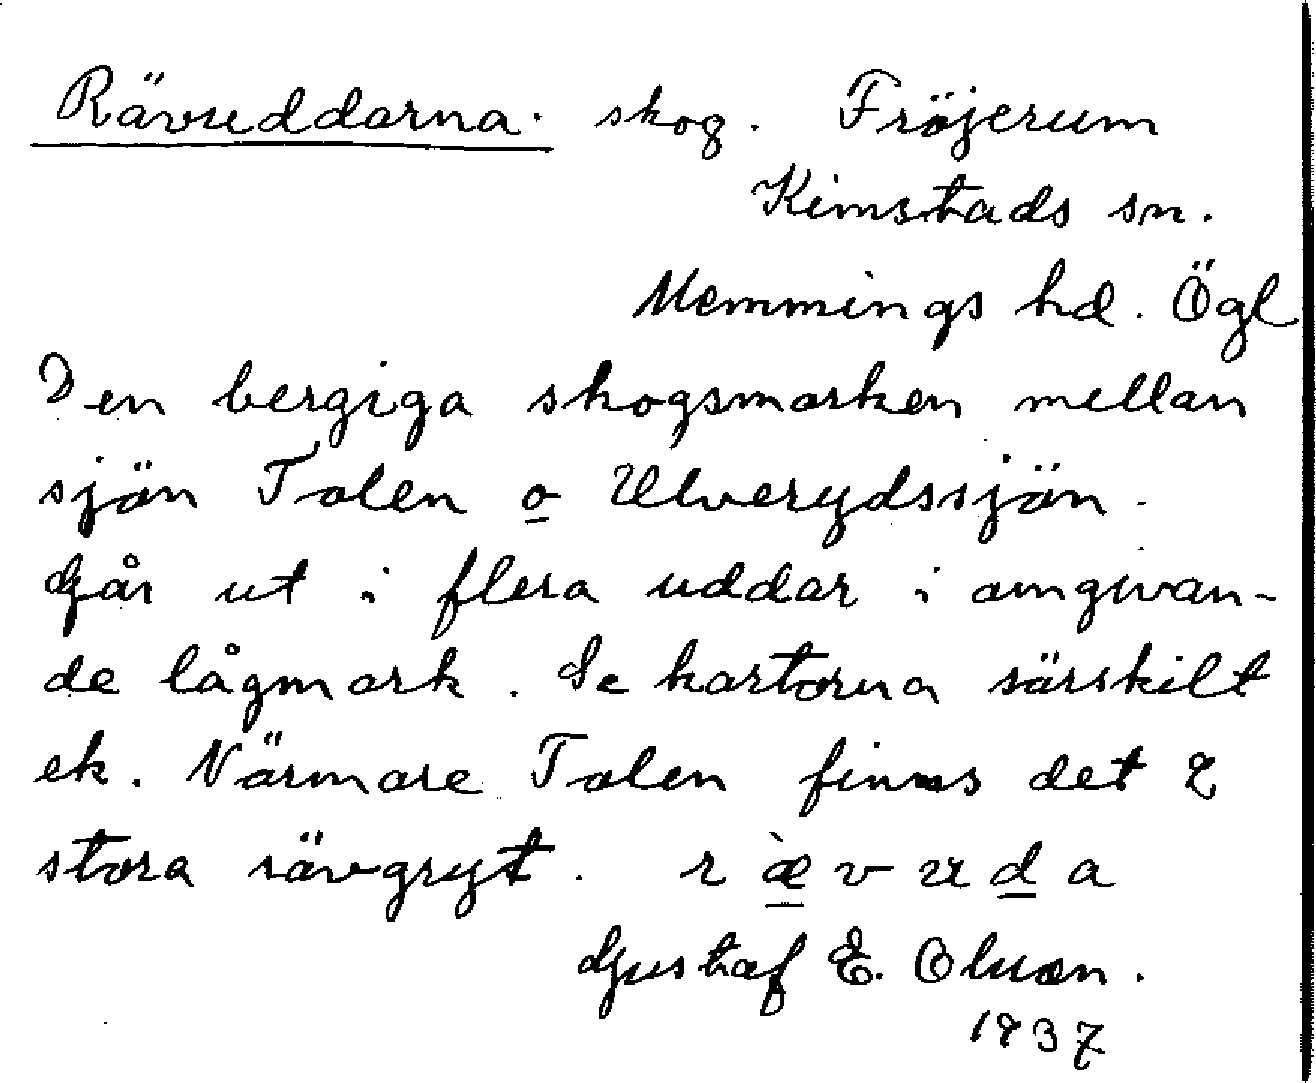 Rävuddarna. skog. Fröjerum
Kimstads sn.
Memmings hd. Ögl
Den bergiga skogsmarken mellan
sjön Tolen o Ulverydssjön.
Går ut i flera uddar i omgivan-
de lågmark. Se kartorna särskilt
ek. Närmare Tolen finns det 2
stora rävgryt. r æ̀ v u d a
Gustaf E. Olsson.
1937